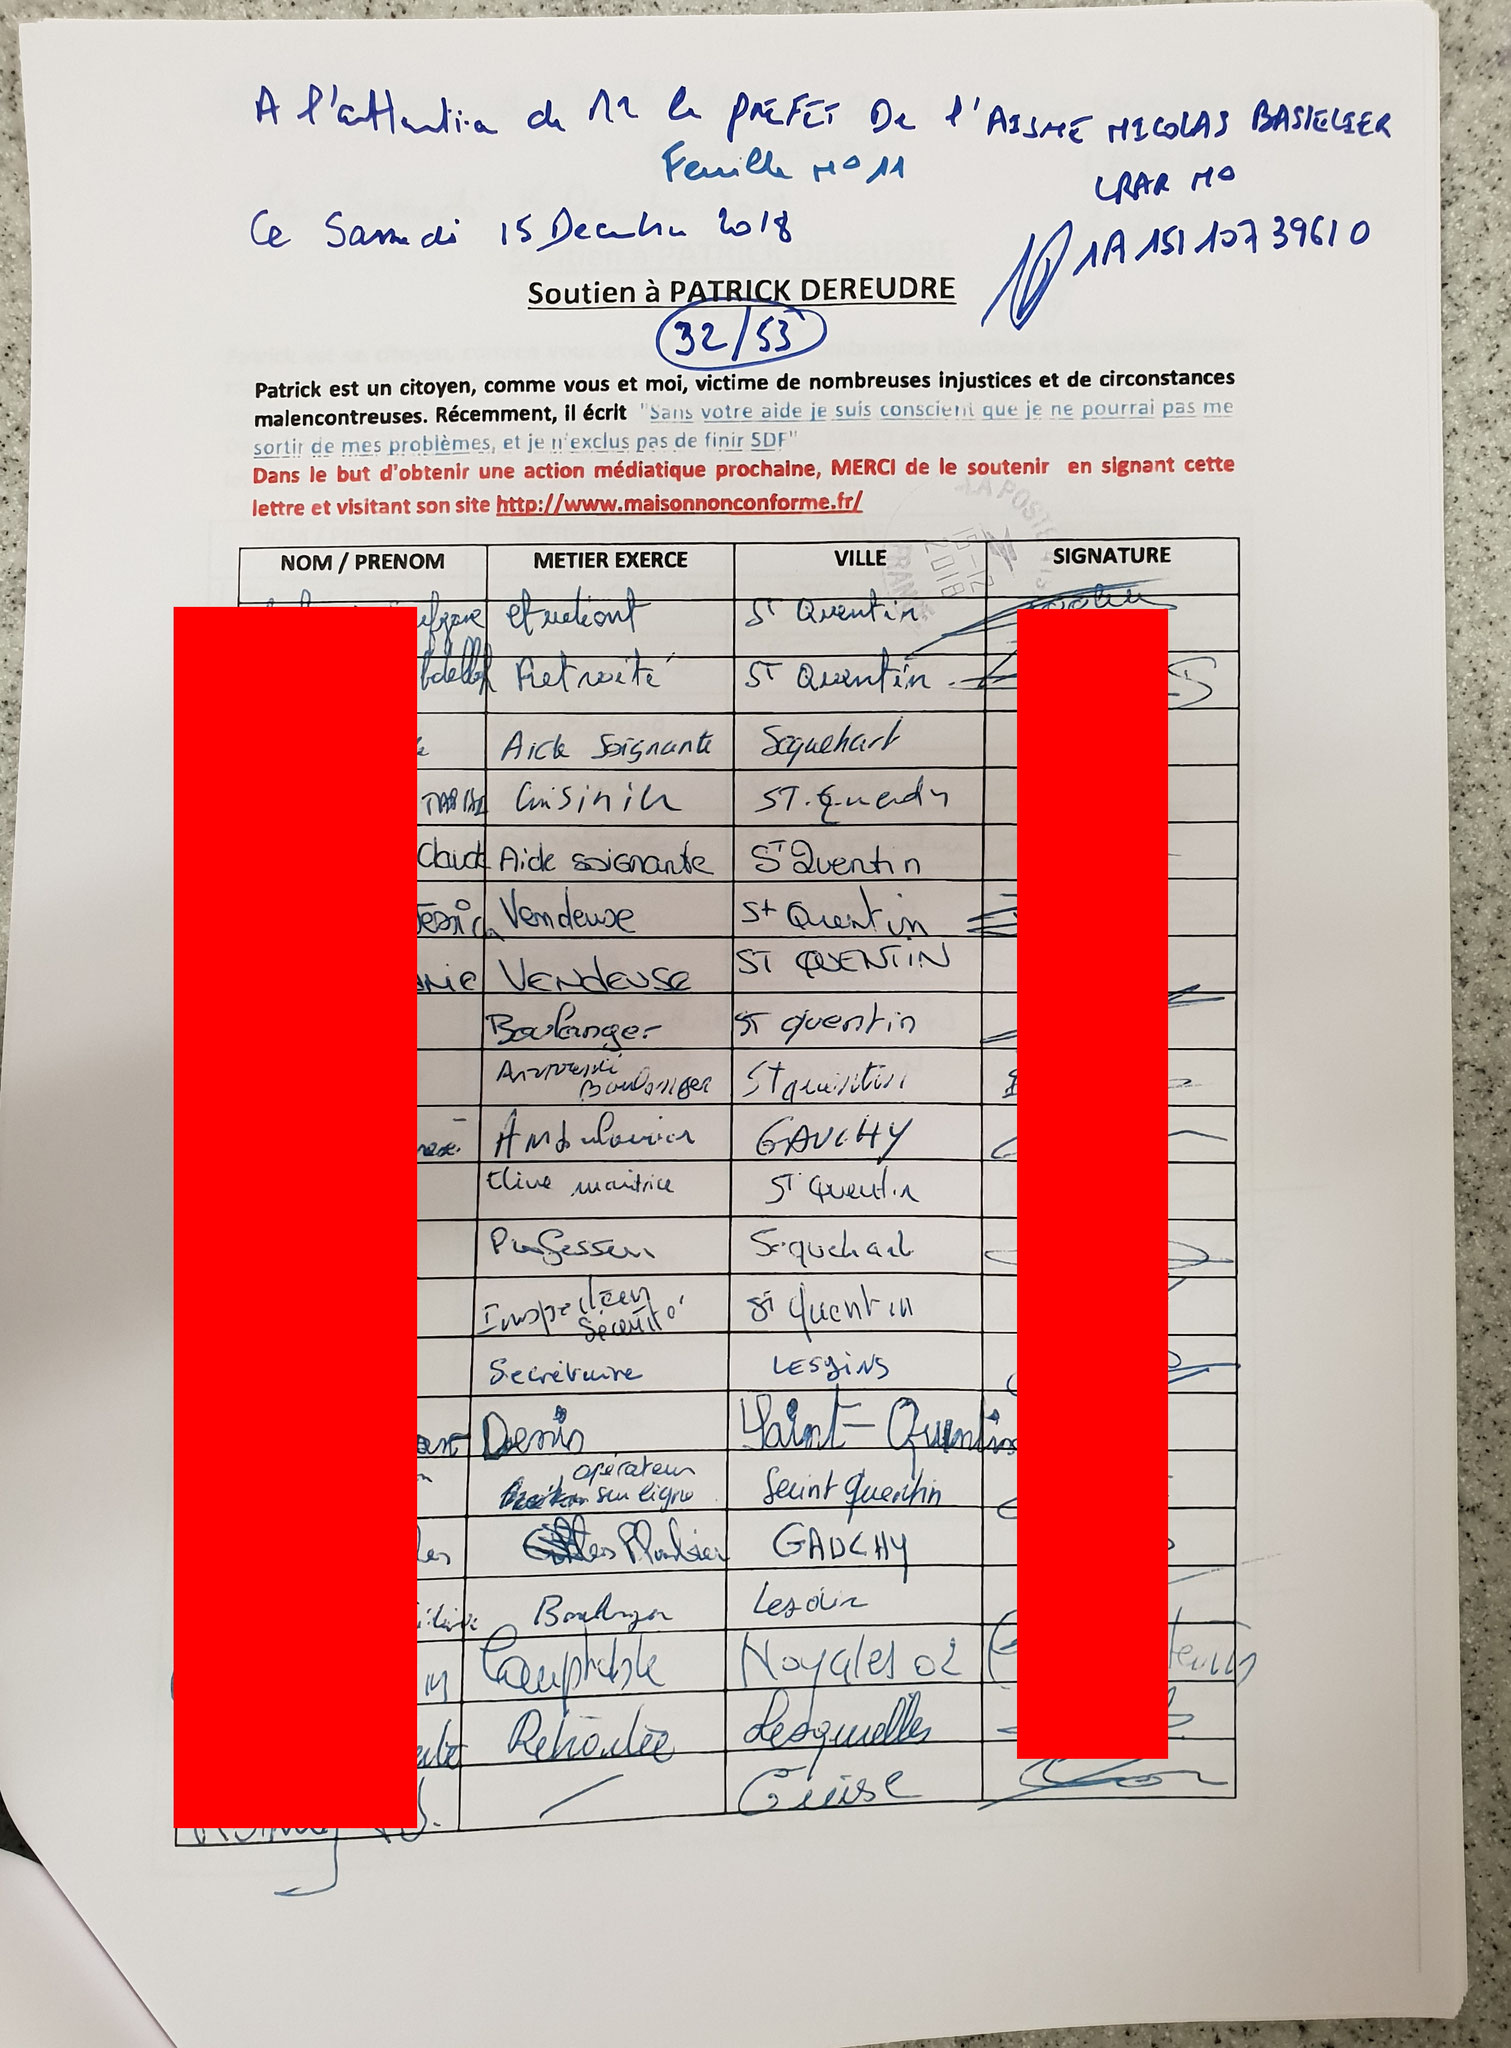 A l'attention de Mr le PREFET De l'AISNE NICOLAS BASSELIER
Feuille N° 11
LRAR N°
Ce Samedi 15 Decembre 2018
1A 151 107 3961 0
Soutien à PATRICK DEREUDRE
32/53
Patrick est un citoyen, comme vous et moi, victime de nombreuses injustices et de circonstances
malencontreuses. Récemment, il écrit "Sans votre aide je suis conscient que je ne pourrai pas me
sortir de mes problèmes, et je n'exclus pas de finir SDF"
Dans le but d'obtenir une action médiatique prochaine, MERCI de le soutenir en signant cette
lettre et visitant son site http://www.maisonnonconforme.fr/
LA POSTE
15-12
2018
FRANCE
NOM / PRENOM METIER EXERCE VILLE SIGNATURE
etudiant St Quentin
Retraité St Quentin
Aide Soignante Sequehart
Cuisinier ST. Quentin
Claude Aide soignante St Quentin
Vendeuse St Quentin
VENDEUSE ST QUENTIN
Boulanger St quentin
Boulanger St quentin
Ambulancier GAUCHY
St Quentin
Professeur Sequehart
Inspecteur Sécurité St Quentin
Secrétaire LESDINS
Denis Saint-Quentin
opérateur
sur ligne Saint Quentin
Plombier GAUCHY
Boulanger
Comptable Noyales 02
Retraitée Lesquielles
/ Guise